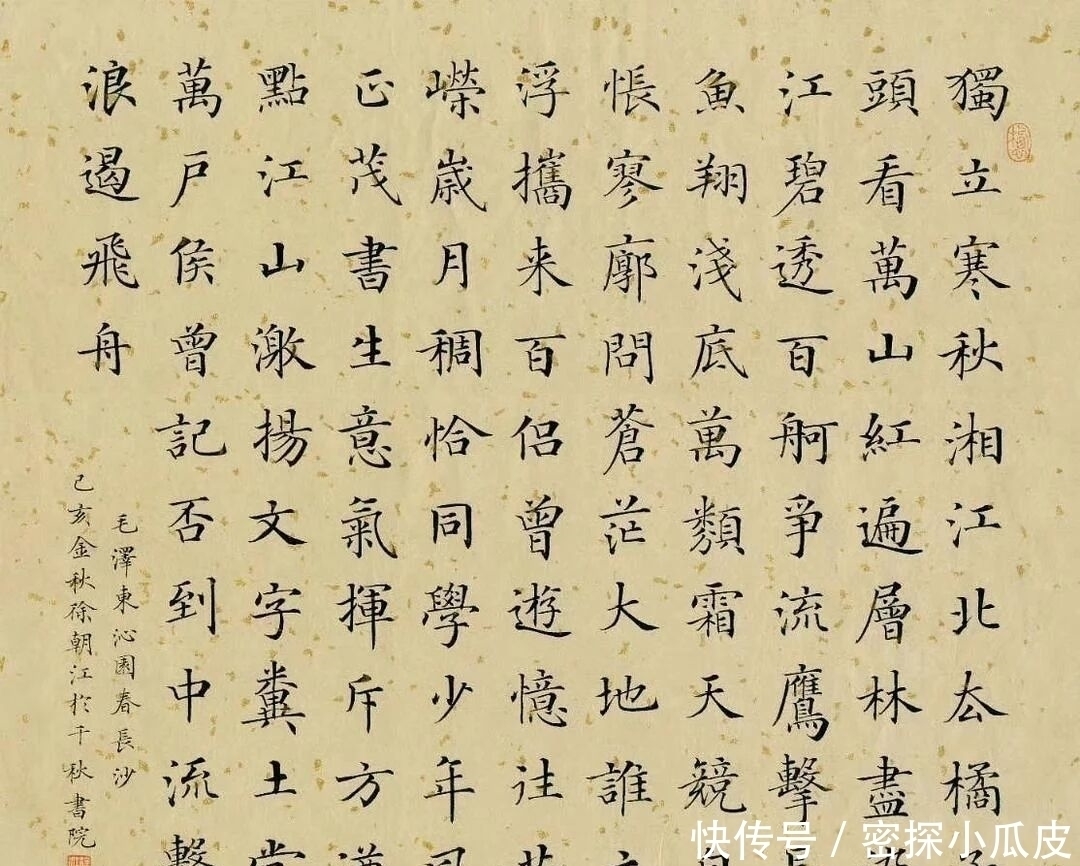 獨立寒秋湘江北去橘
頭看萬山紅遍層林盡
江碧透百舸爭流鷹擊
魚翔淺底萬類霜天競
悵寥廓問蒼茫大地誰
浮攜来百侶曾遊憶往
嶸歲月稠恰同學少年
正茂書生意氣揮斥方
點江山激揚文字糞土
萬户侯曾記否到中流
浪遏飛舟
毛澤東沁園春長沙
己亥金秋徐朝江於千秋書院
快传号 / 密探小瓜皮